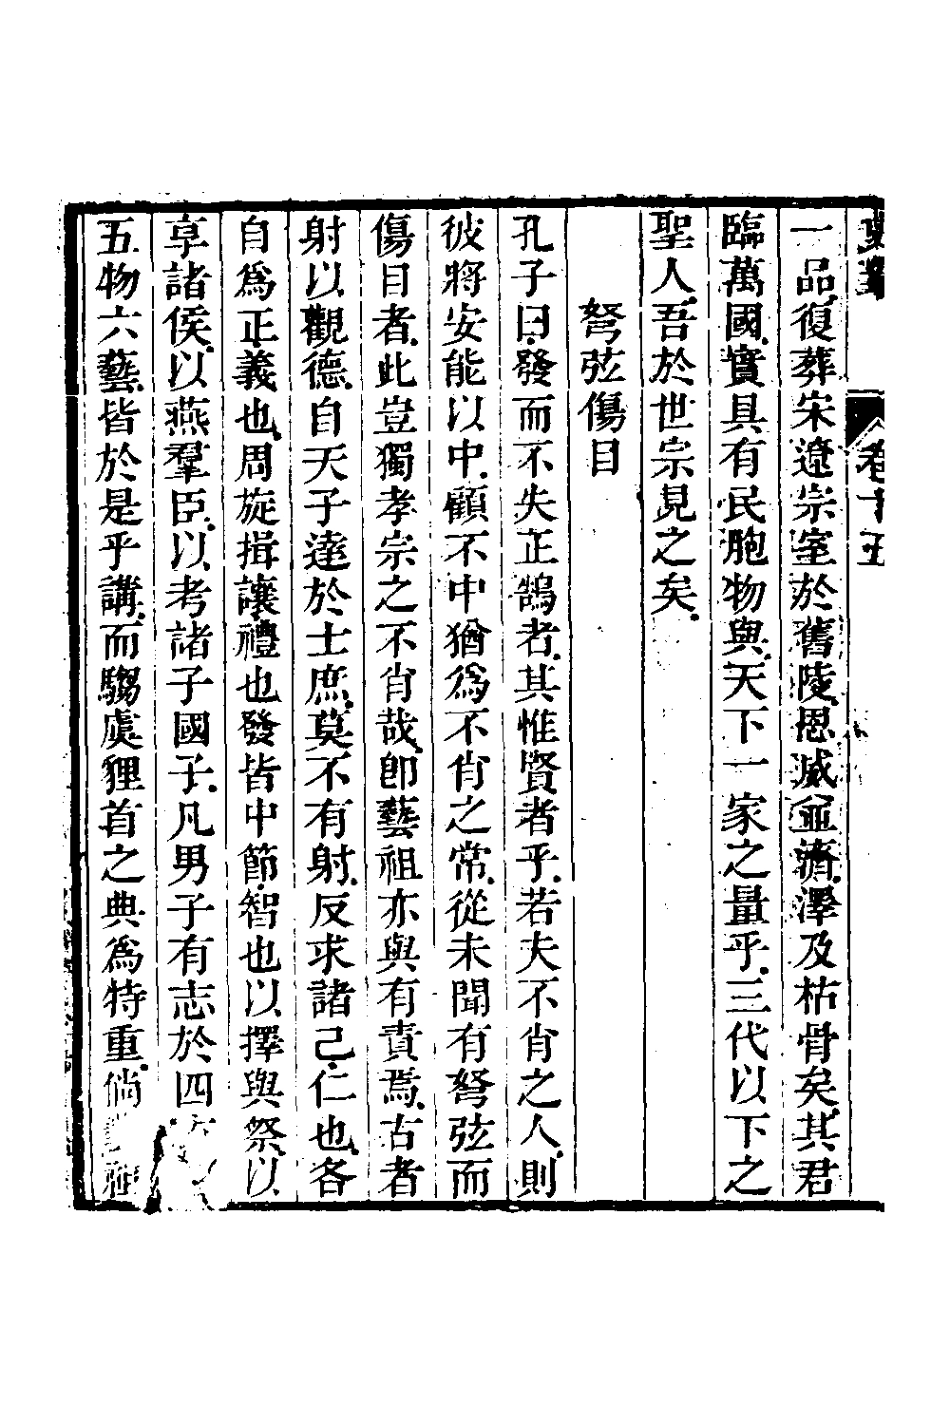 卷十五
一品,復葬宋遼宗室於舊陵,恩威並濟,澤及枯骨矣,其君
臨萬國,實具有民胞物與,天下一家之量乎,三代以下之
聖人,吾於世宗見之矣.
弩弦傷目
孔子曰,發而不失正鵠者,其惟賢者乎,若夫不肖之人,則
彼將安能以中,顧不中猶爲不肖之常,從未聞有弩弦而
傷目者,此豈獨孝宗之不肖哉,卽藝祖亦與有責焉,古者
射以觀德,自天子達於士庶,莫不有射,反求諸己,仁也,各
自爲正,義也,周旋揖讓,禮也發皆中節,智也以擇與祭,以
享諸侯,以燕羣臣,以考諸子國子,凡男子有志於四
五物六藝,皆於是乎講,而騶虞狸首之典爲特重,倘